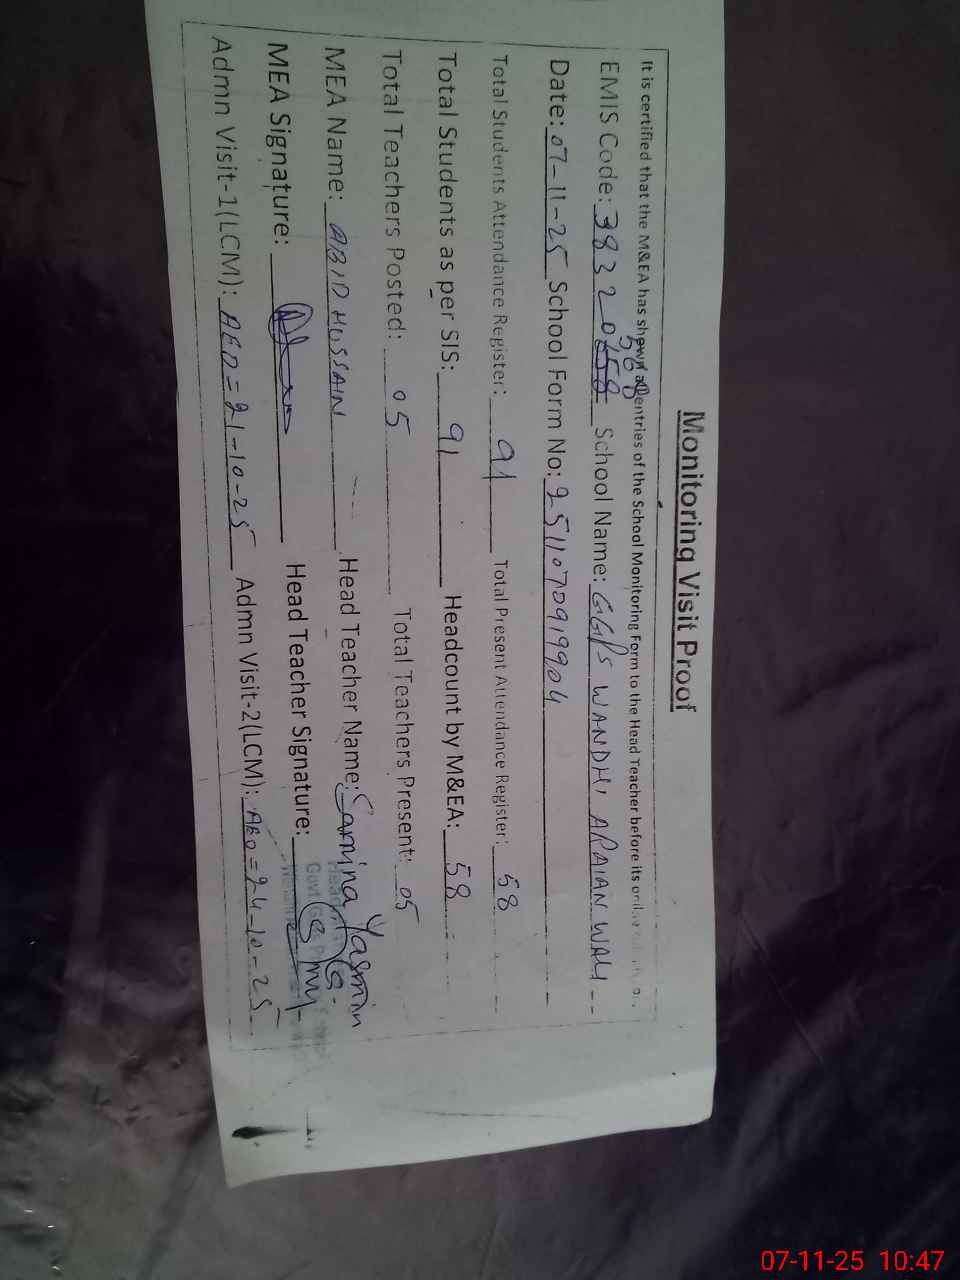 Monitoring Visit Proof
It is certified that the M&EA has shown all entries of the School Monitoring Form to the Head Teacher before its
568
EMIS Code: 38320 School Name: GGPS WANDHI ARAIAN WALI
Date: 07-11-25 School Form No: 2511070919904
Total Students Attendance Register: 91 Total Present Attendance Register: 58
Total Students as per SIS: 91 Headcount by M&EA: 58
Total Teachers Posted: 05 Total Teachers Present: 05
MEA Name: ABID HUSSAIN Head Teacher Name: Samina Yasmin
MEA Signature: Head Teacher Signature:
Admn Visit-1(LCM): AEO=21-10-25 Admn Visit-2(LCM): AEO=24-10-25
07-11-25 10:47